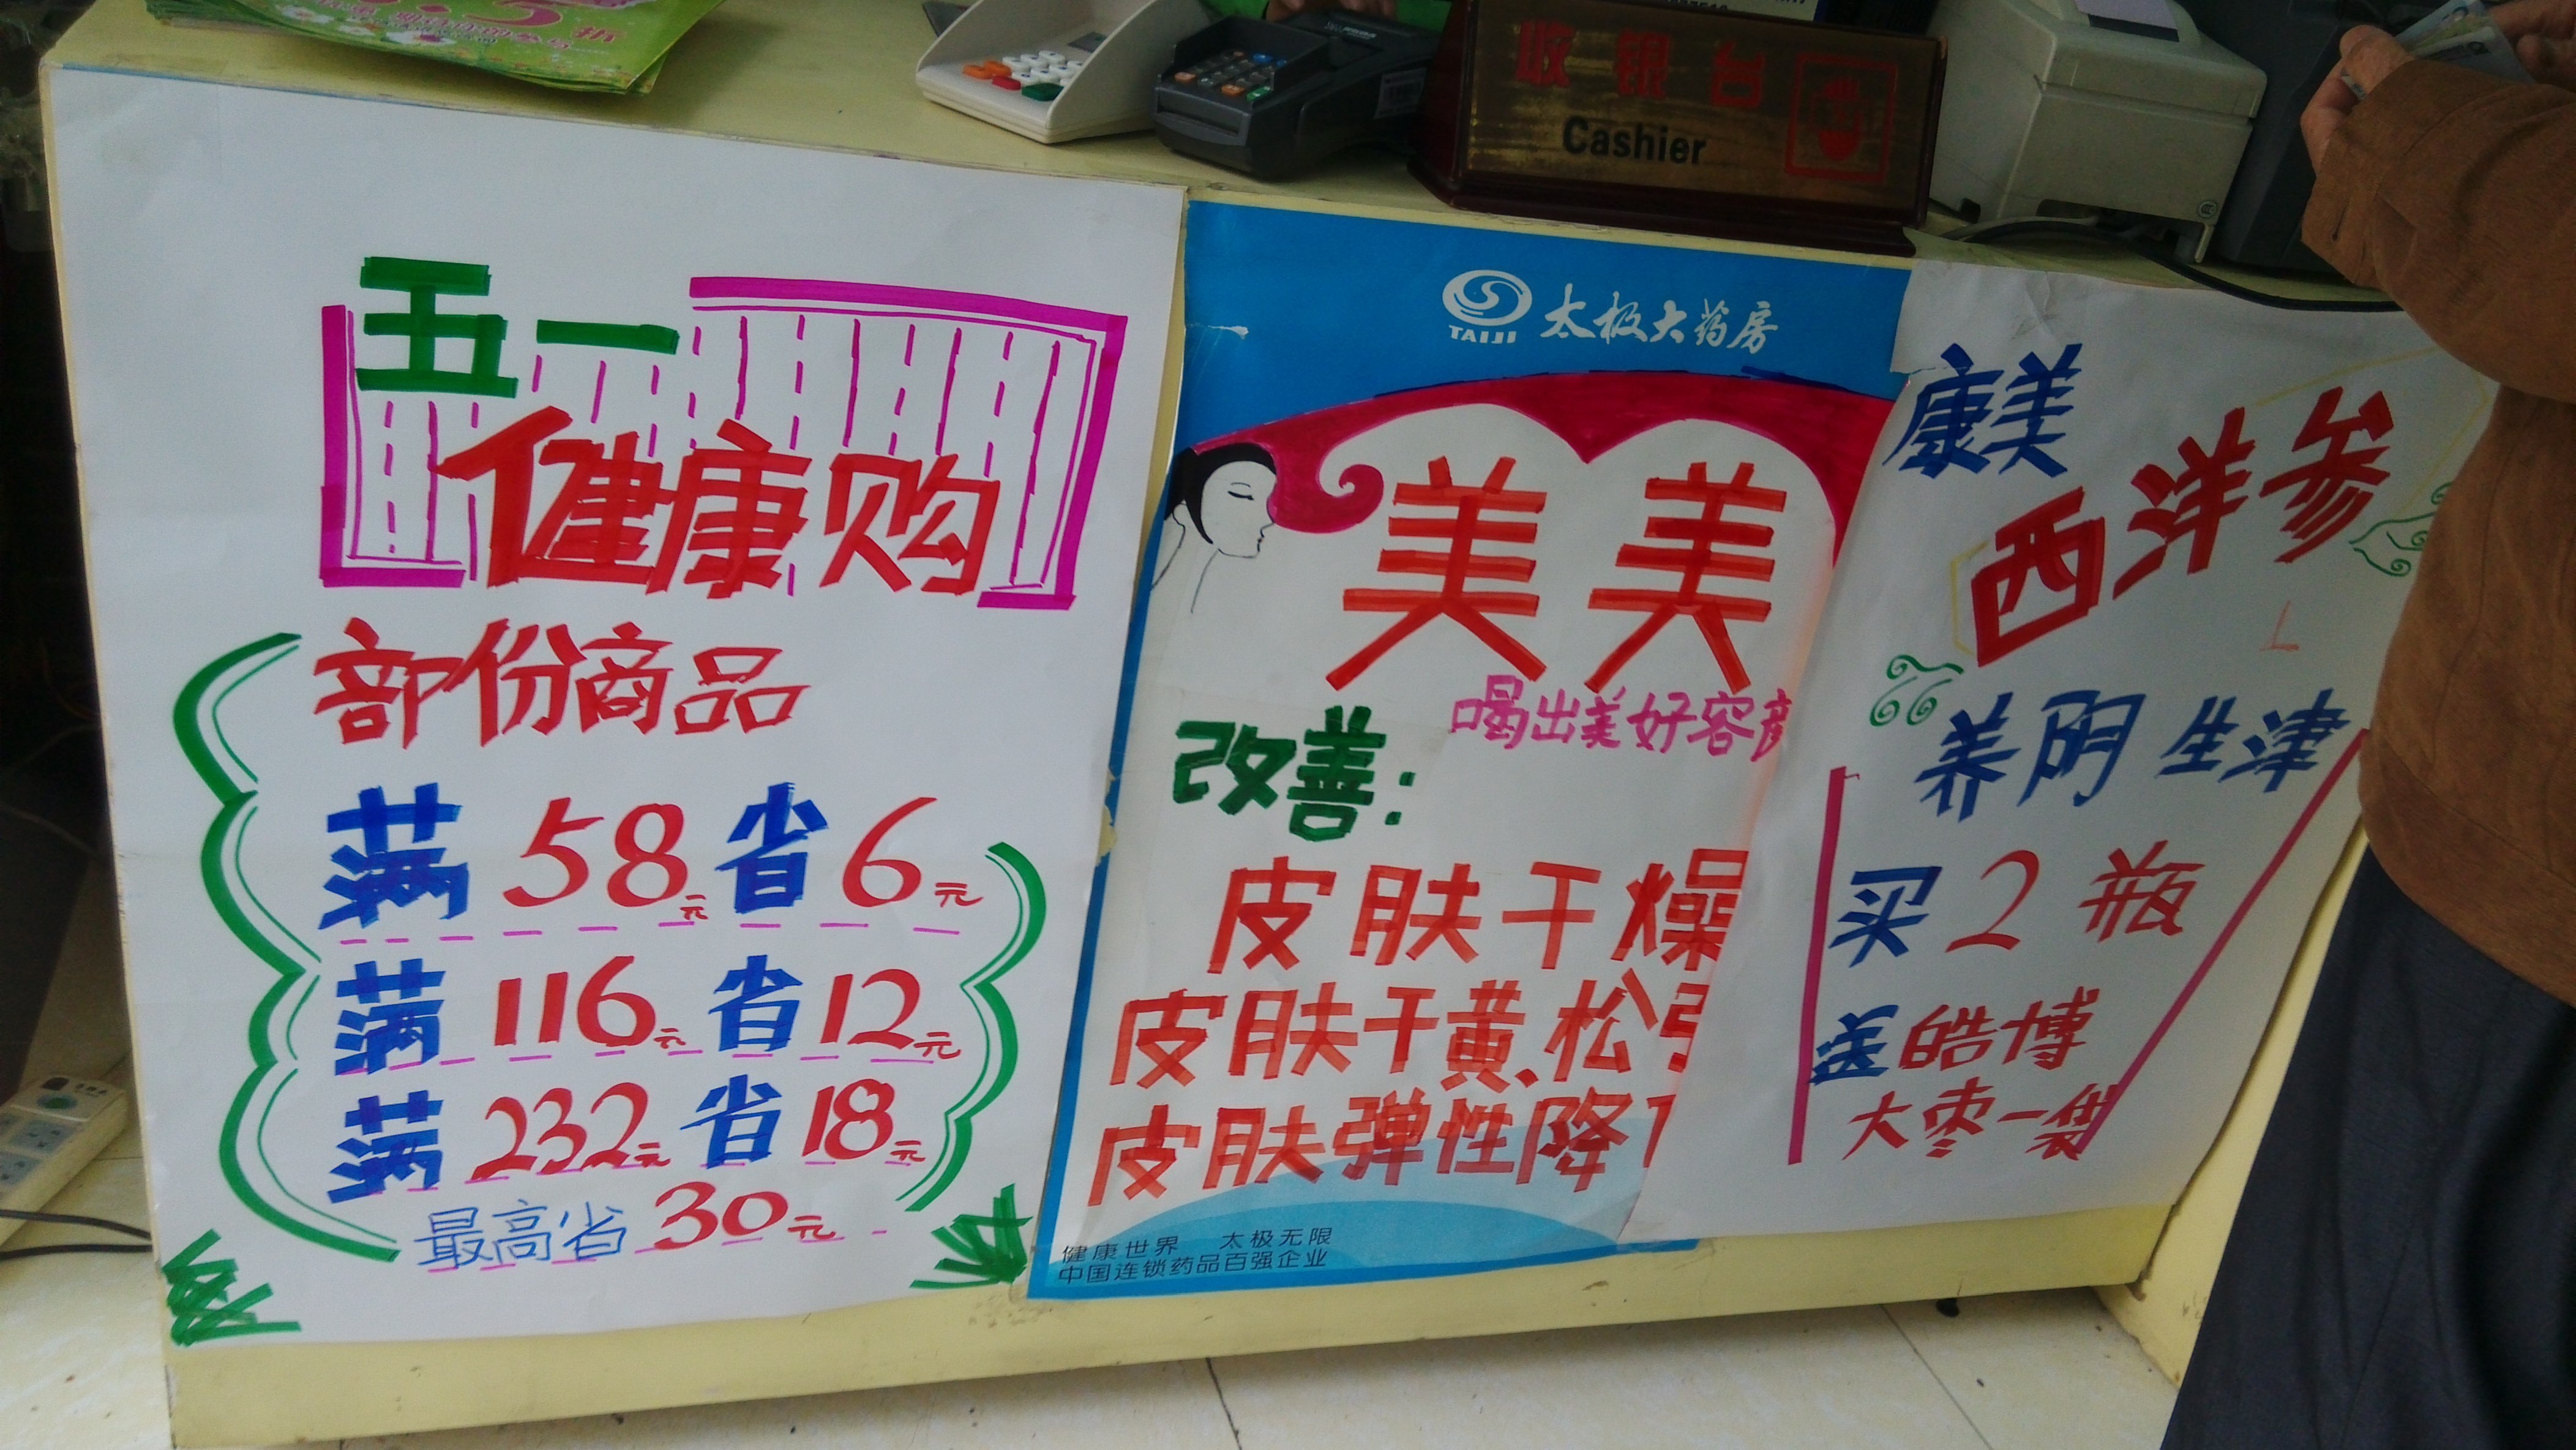 折
收银台
Cashier
五一
健康购
部份商品
满58元省6元
满116元省12元
满232元省18元
最高省30元
TAIJI 太极大药房
美美
喝出美好容
改善:
皮肤干燥
皮肤干黄、松
皮肤弹性降
健康世界 太极无限
中国连锁药品百强企业
康美
西洋参
养阴生津
买2瓶
送皓博
大枣一袋